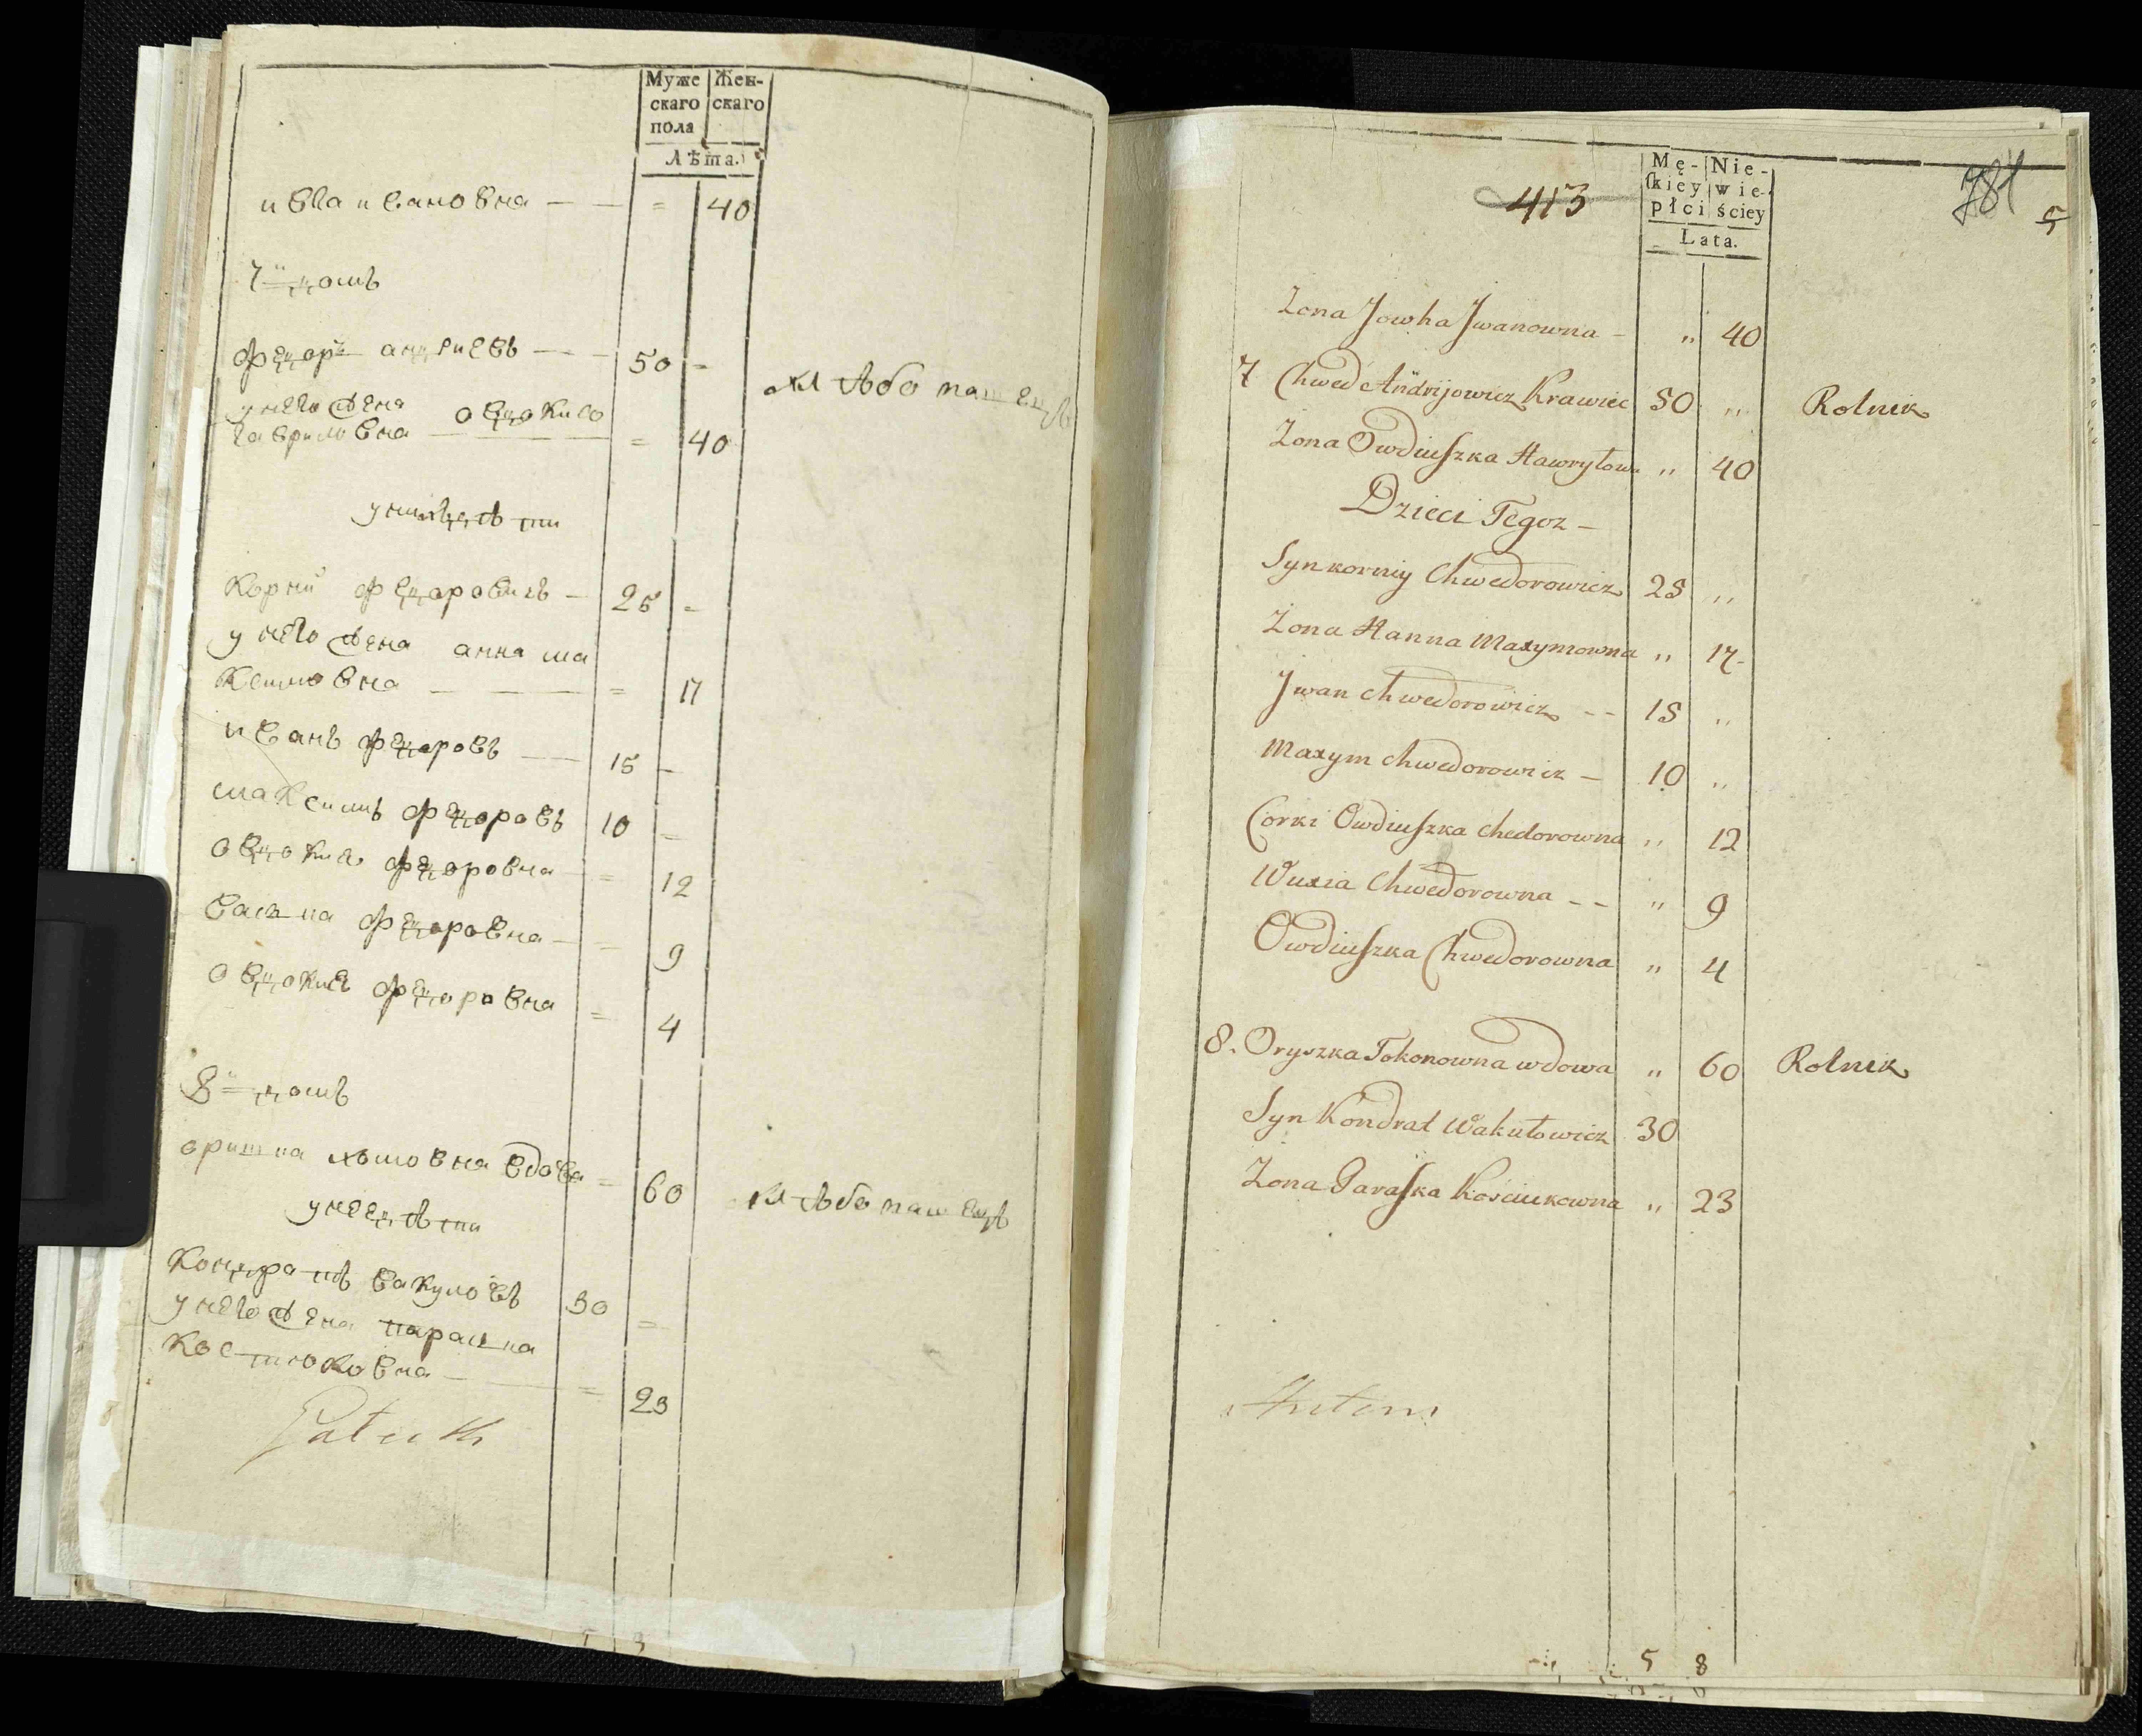 Муже
скаго
пола
Жен-
скаго
Лѣта.
ивга ивановна — — = 40
7й домъ
федоръ андриевъ — — 50 -
хлѣбо пашецъ
у него жена овдокию
гавриловна — — = 40
у них дѣти
Корний федоровичъ — 25 -
у него жена анна ма
Ксимовна — — — = 17
иванъ федоровъ — — 15 -
максимъ федоровъ 10 -
овдокия федоровна = 12
васька федоровна — = 9
овдокия федоровна = 4
8й домъ
оришка вдова = 60
хлѣбо пашецъ
у нее дѣти
Кондратъ вакуловъ 30 =
у него жена параска
Костюковна — — = 23
413
Mę-
skiey
płci
Nie-
wie-
ściey
Lata.
781
5
Zona Jowha Jwanowna - „ 40
7 Chwed Andrijowicz Krawiec 50 „ Rolnik
Zona Owdiuszka Hawryłowa „ 40
Dzieci Tegoz —
Syn korniy Chwedorowicz 25 „
Zona Hanna Maxymowna „ 17-
Jwan Chwedorowicz - - 15 „
Maxym Chwedorowicz — 10 „
Corki Owdiuszka Chedorowna „ 12
Wusia Chwedorowna - - „ 9
Owdiuszka Chwedorowna „ 4
8. Oryszka Tokonowna wdowa „ 60 Rolnik
Syn Kondrat Wakułowicz 30
Zona Paraska Kościukowna „ 23
5 8